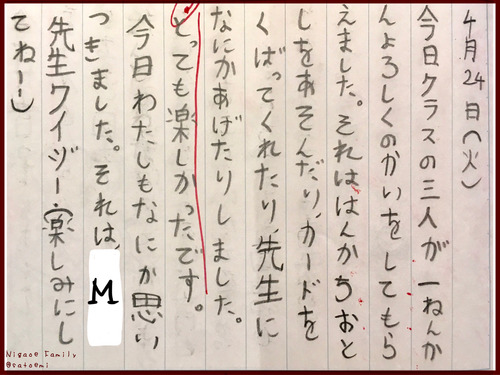 4月24日(火)
今日クラスの三人が一ねんか
んよろしくのかいをしてもら
えました。それははんかちおと
しをあそんだり、カードを
くばってくれたり、先生に
なにかあげたりしました。
とっても楽しかったです。
今日わたしもなにか思い
つきました。それは、M
先生クイヅー・(楽しみにし
てねー)
Nigaoe Family
@satoemi